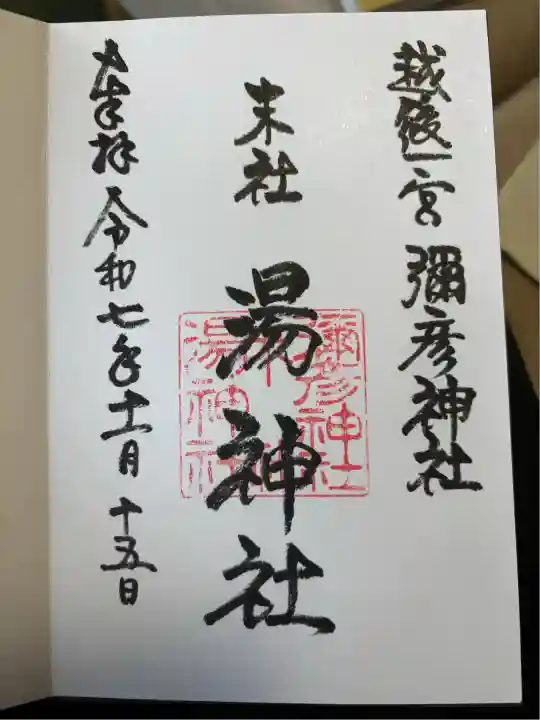 越後一宮 彌彦神社
末社
湯神社
彌彦神社
末社
湯神社
奉拝 令和七年十一月十五日